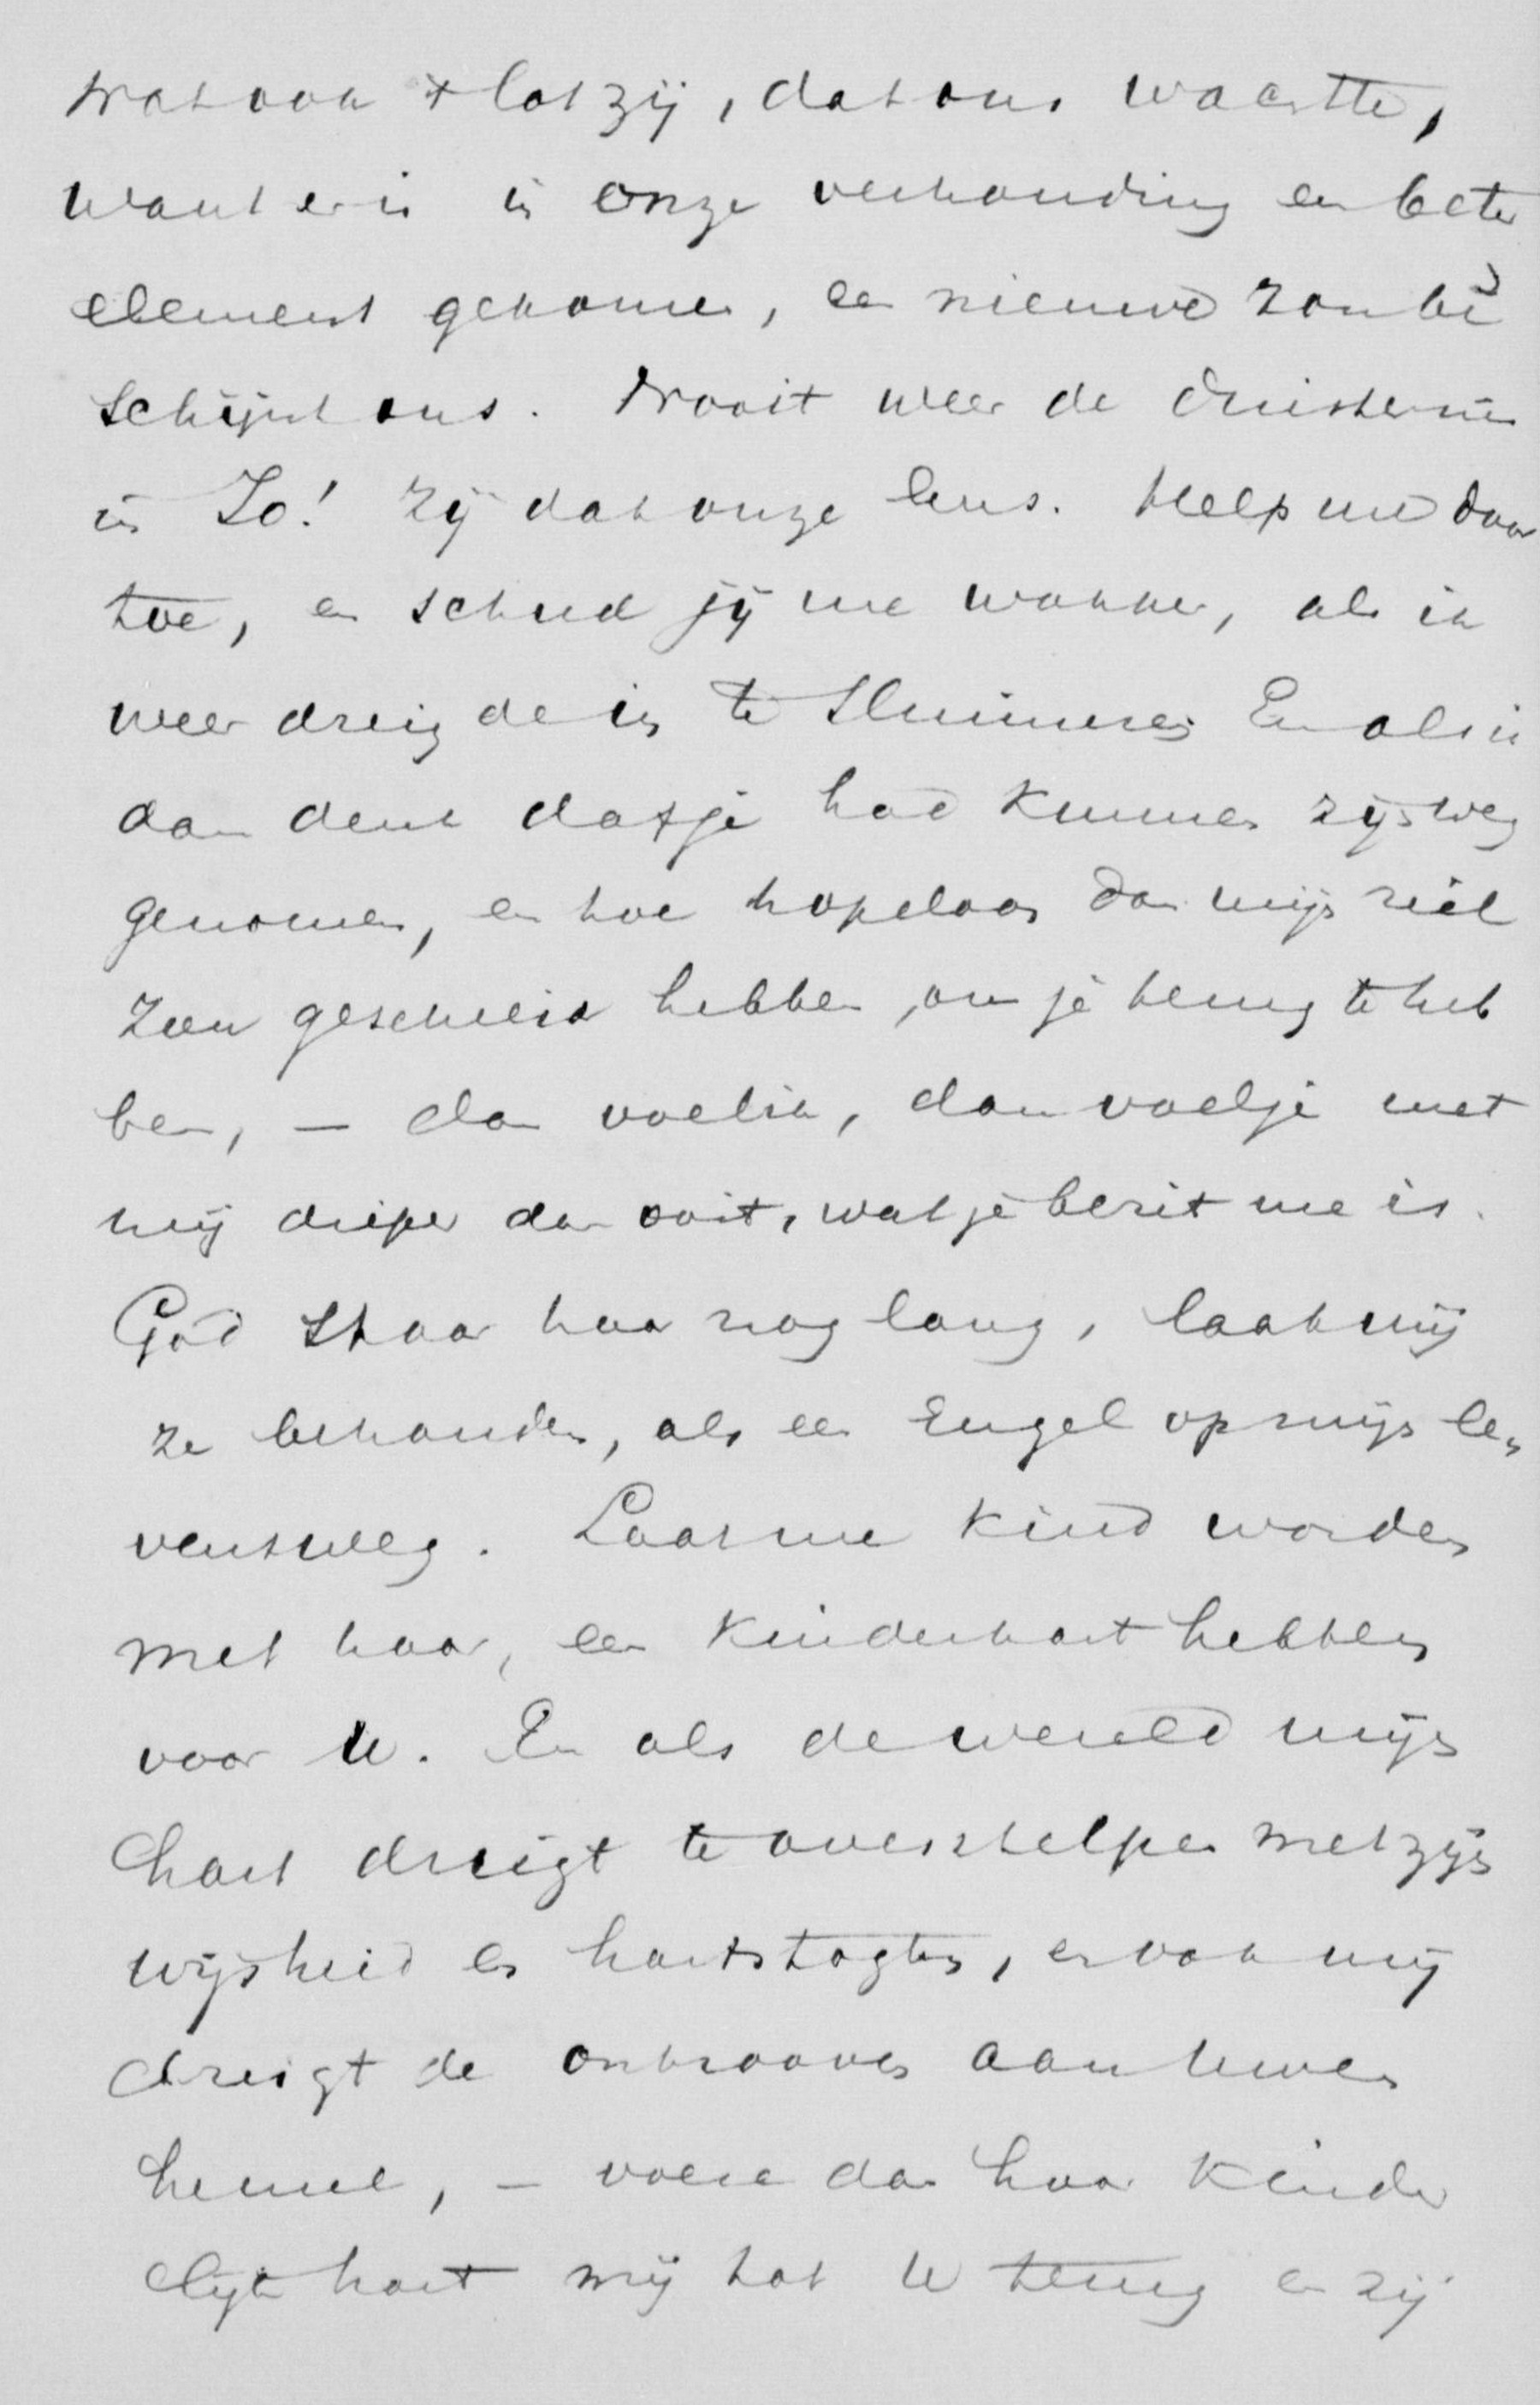 wat ook 't lot zij, dat ons wachtte,
want er is in onze verhouding een beter
element gekomen, een nieuwe zon be
schijnt ons. Nooit weer de duisternis
in Jo! Zij dat onze leus. Help me daar
toe, en schud jij me wakker, als ik
weer dreigde in te sluimeren. En als ik
dan denk dat je had kunnen zijn weg
genomen, en hoe hopeloos dan mijn ziel
zou geschreid hebben, om je terug te heb
ben, — dan voel ik, dan voel je met
mij dieper dan ooit, wat je bezit me is.
God spaar haar nog lang, laat mij
ze behouden, als een Engel op mijn le„
vensweg. Laat me kind worden
met haar, een kinderhart hebben
voor U. En als de wereld mijn
hart dreigt te overstelpen met zijn
wijsheid en hartstogten, en ook mij
dreigt te ontrooven aan Uwen
hemel, — voere dan haar kinder
lijk hart mij tot U terug en zij